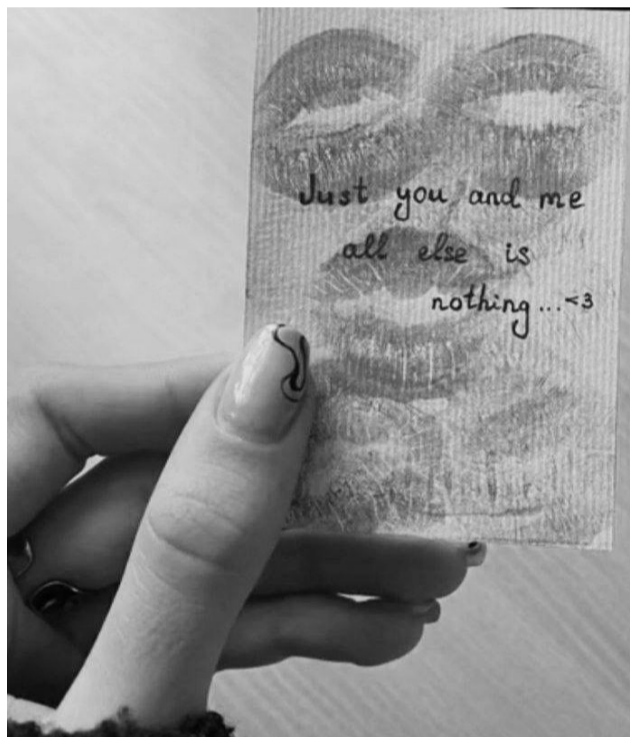 Just you and me
all else is
nothing...<3